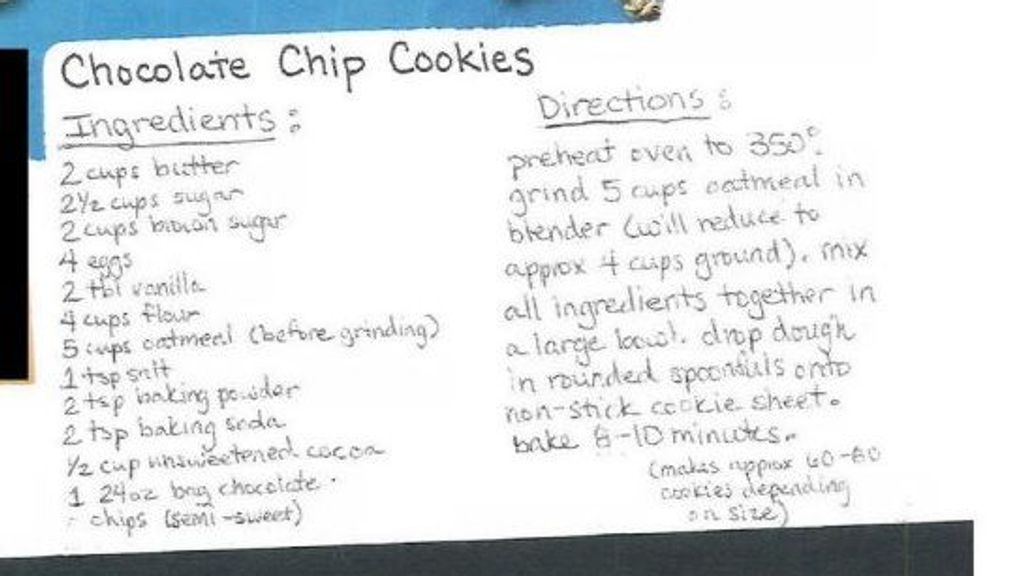 Chocolate Chip Cookies
Ingredients:
2 cups butter
2 1/2 cups sugar
2 cups brown sugar
4 eggs
2 tbl vanilla
4 cups flour
5 cups oatmeal (before grinding)
1 tsp salt
2 tsp baking powder
2 tsp baking soda
1/2 cup unsweetened cocoa
1 24oz bag chocolate
chips (semi-sweet)
Directions:
preheat oven to 350°.
grind 5 cups oatmeal in
blender (will reduce to
approx 4 cups ground). mix
all ingredients together in
a large bowl. drop dough
in rounded spoonfuls onto
non-stick cookie sheet.
bake 8-10 minutes.
(makes approx 60-80
cookies depending
on size)